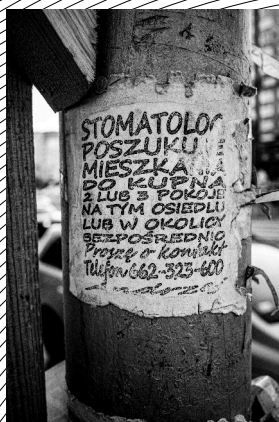 STOMATOLOG
POSZUKUJE
MIESZKANIA
DO KUPNA
2 LUB 3 POKOJE
NA TYM OSIEDLU
LUB W OKOLICY
BEZPOŚREDNIO
Proszę o kontakt
Telefon 662-323-600